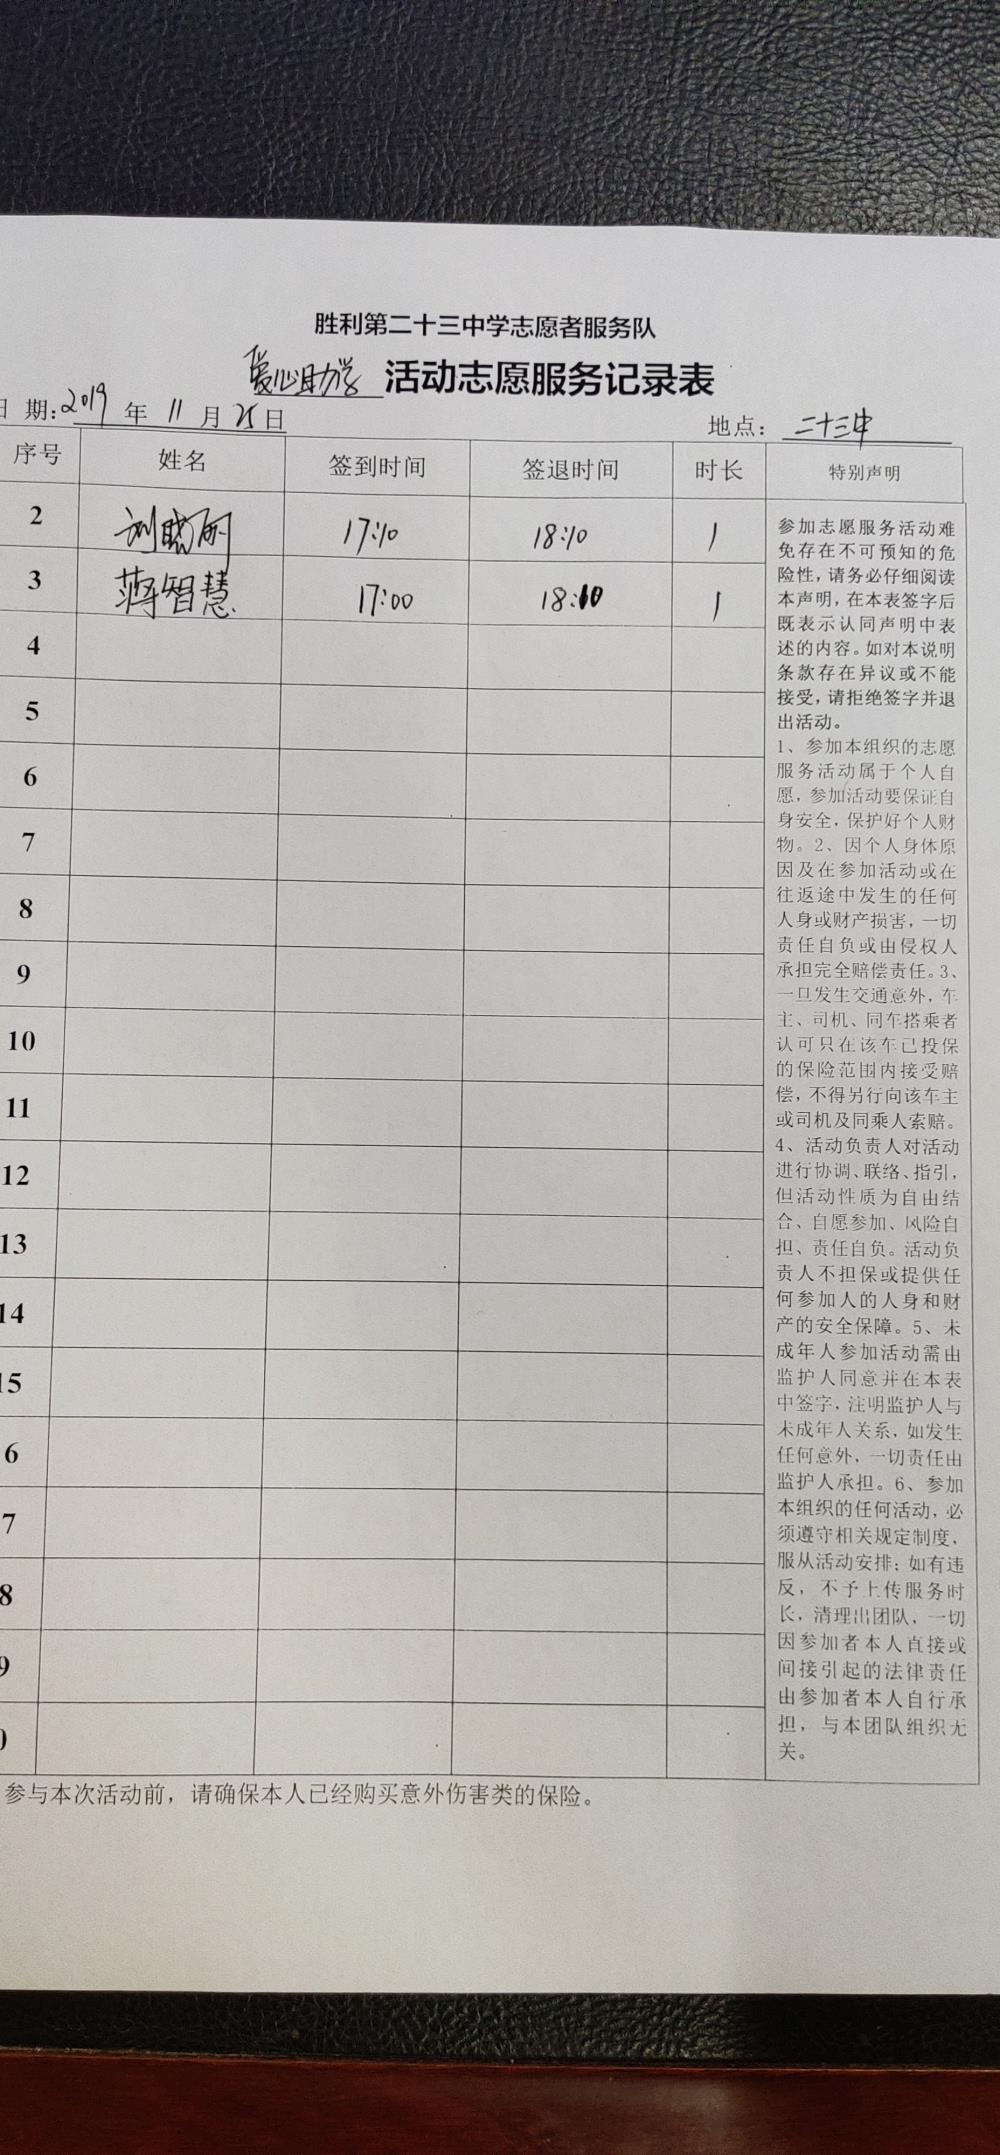 胜利第二十三中学志愿者服务队
爱心助学 活动志愿服务记录表
日 期:2019 年 11 月 25 日 地点： 二十三中
序号 姓名 签到时间 签退时间 时长 特别声明
2 刘晓丽 17:10 18:10 1
3 蒋智慧 17:00 18:10 1
4
5
6
7
8
9
10
11
12
13
14
15
6
7
8
9
0
参加志愿服务活动难
免存在不可预知的危
险性，请务必仔细阅读
本声明，在本表签字后
既表示认同声明中表
述的内容。如对本说明
条款存在异议或不能
接受，请拒绝签字并退
出活动。
1、参加本组织的志愿
服务活动属于个人自
愿，参加活动要保证自
身安全，保护好个人财
物。2、因个人身体原
因及在参加活动或在
往返途中发生的任何
人身或财产损害，一切
责任自负或由侵权人
承担完全赔偿责任。3、
一旦发生交通意外，车
主、司机、同车搭乘者
认可只在该车已投保
的保险范围内接受赔
偿，不得另行向该车主
或司机及同乘人索赔。
4、活动负责人对活动
进行协调、联络、指引，
但活动性质为自由结
合、自愿参加、风险自
担、责任自负。活动负
责人不担保或提供任
何参加人的人身和财
产的安全保障。5、未
成年人参加活动需由
监护人同意并在本表
中签字，注明监护人与
未成年人关系，如发生
任何意外，一切责任由
监护人承担。6、参加
本组织的任何活动，必
须遵守相关规定制度，
服从活动安排；如有违
反，不予上传服务时
长，清理出团队，一切
因参加者本人直接或
间接引起的法律责任
由参加者本人自行承
担，与本团队组织无
关。
参与本次活动前，请确保本人已经购买意外伤害类的保险。